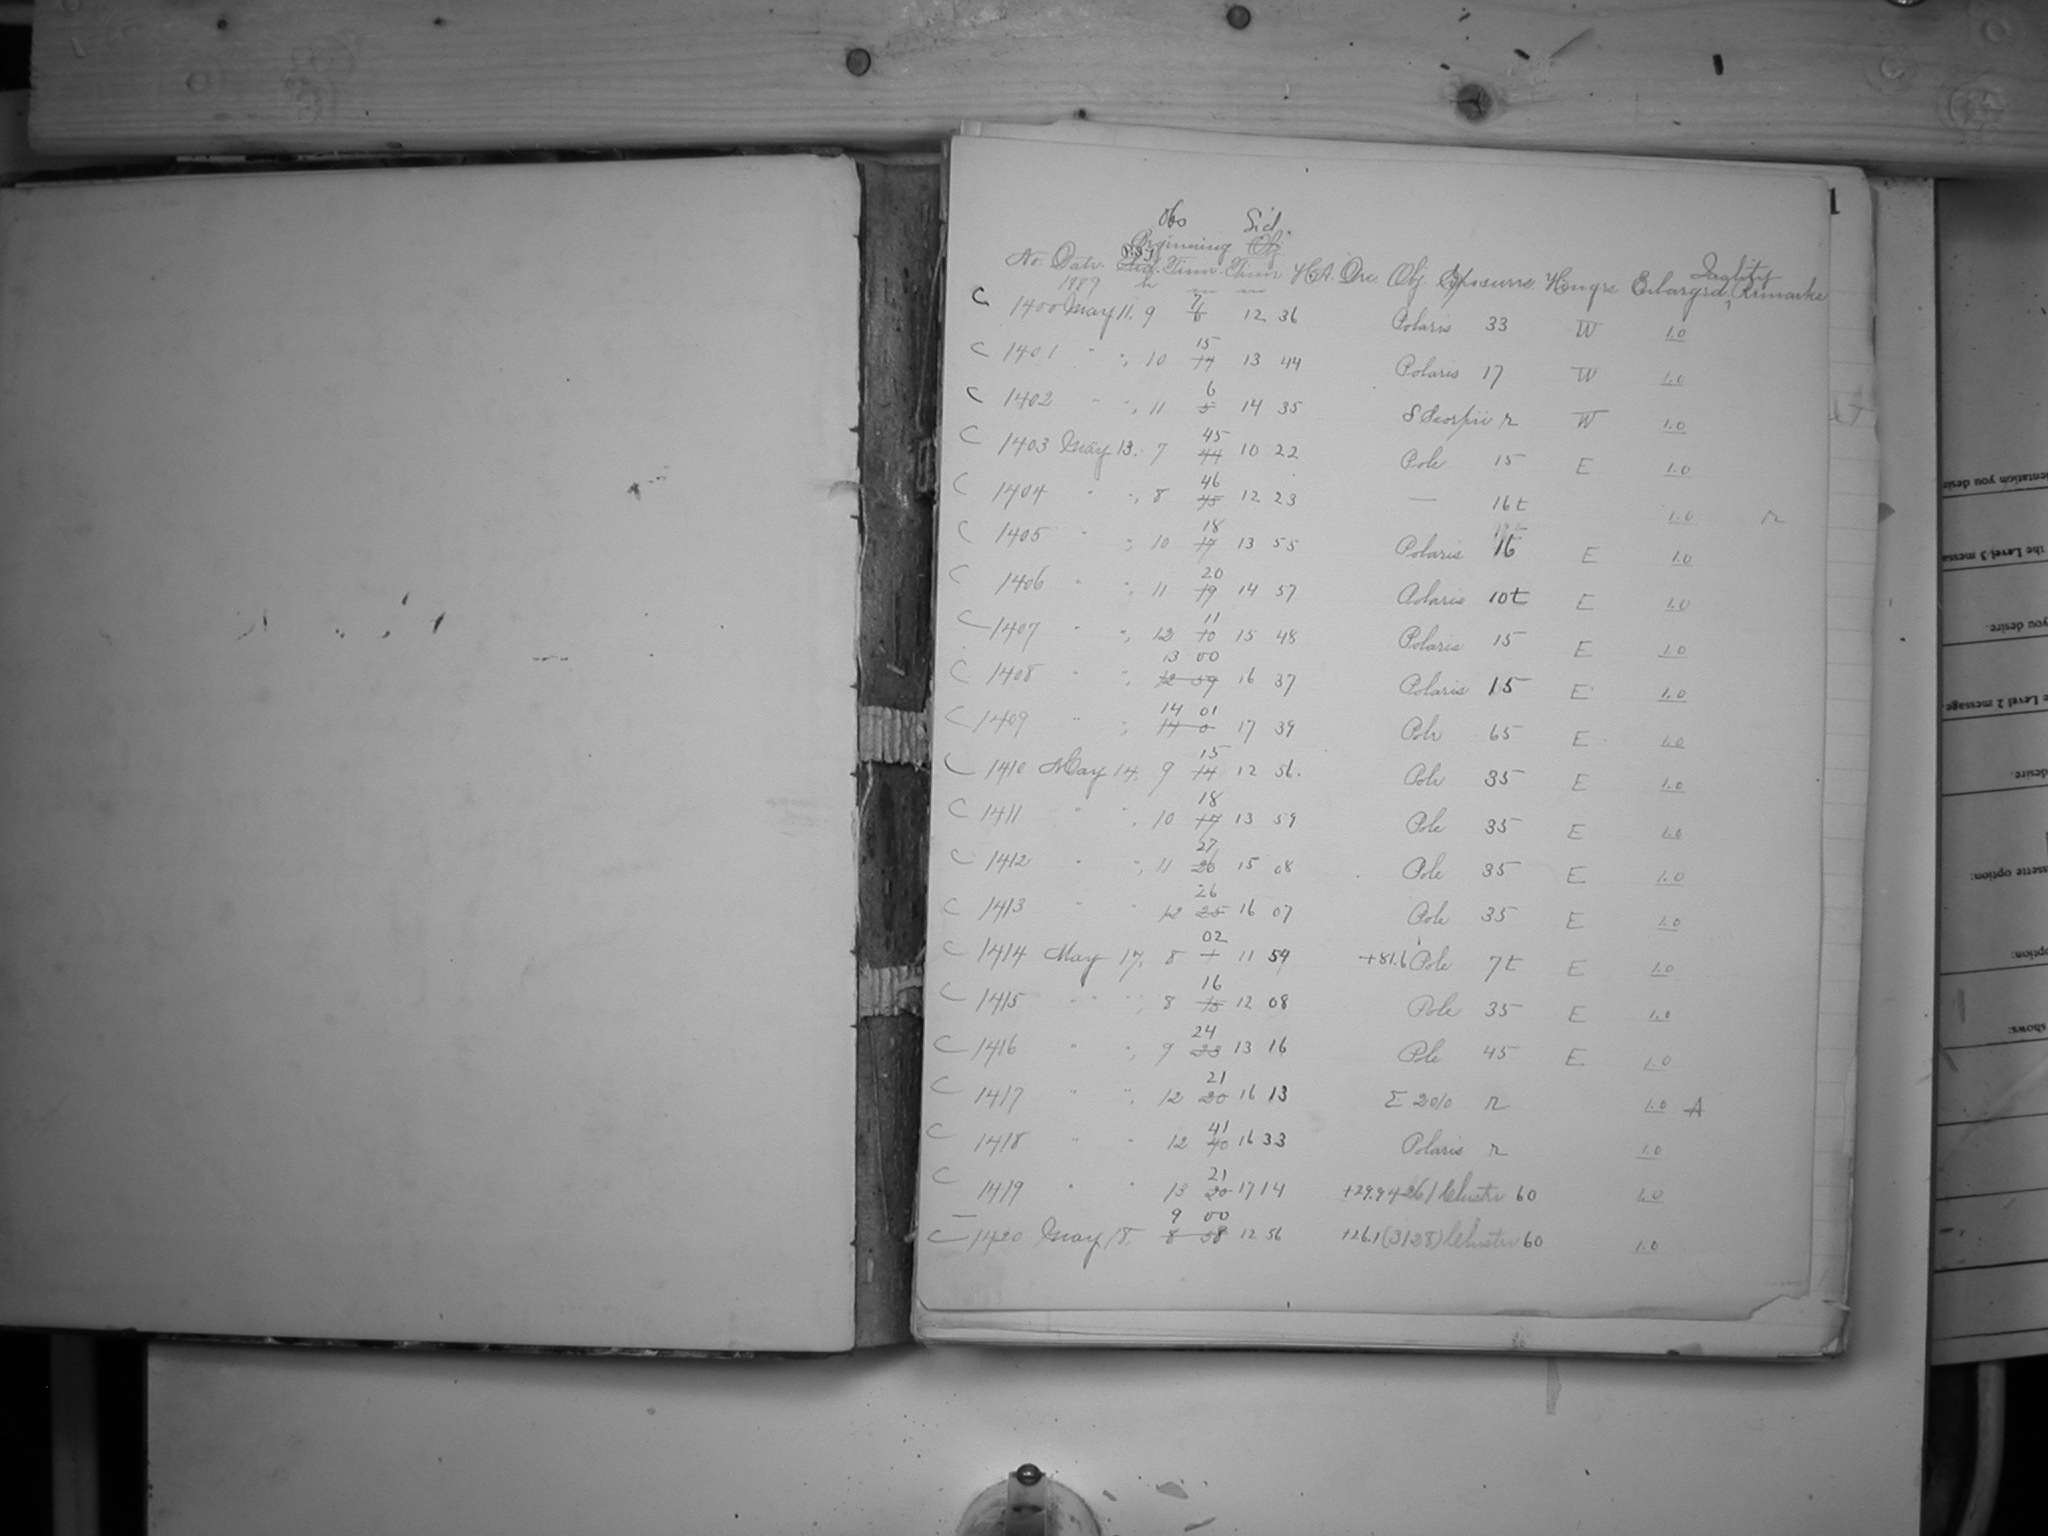 1
Obs Sid.
Beginning Obj
No. Date. Sid. Time. Time H.A. Dec. Obj. Exposure Hinges Enlarged Quality Remarks
1889 h m m
C 1400 May 11. 9 7 6 12 36 Polaris 33 W 1.0
C 1401 " " 10 15 14 13 44 Polaris 17 W 1.0
C 1402 " " 11 6 5 14 35 δ Scorpii r W 1.0
C 1403 May 13. 7 45 44 10 22 Pole 15 E 1.0
C 1404 " " 8 46 45 12 23 — 16t 1.0 r
C 1405 " " 10 18 17 13 55 Polaris 16 E 1.0
C 1406 " " 11 20 19 14 57 Polaris 10t E 1.0
C 1407 " " 12 11 10 15 48 Polaris 15 E 1.0
C 1408 " " 13 00 12 59 16 37 Polaris 15 E 1.0
C 1409 " " 14 01 14 0 17 39 Pole 65 E 1.0
C 1410 May 14. 9 15 14 12 56. Pole 35 E 1.0
C 1411 " " 10 18 17 13 59 Pole 35 E 1.0
C 1412 " " 11 27 26 15 08 Pole 35 E 1.0
C 1413 " " 12 26 25 16 07 Pole 35 E 1.0
C 1414 May 17, 8 02 1 11 54 +81.6 Pole 7t E 1.0
C 1415 " " 8 16 15 12 08 Pole 35 E 1.0
C 1416 " " 9 24 23 13 16 Pole 45 E 1.0
C 1417 " " 12 21 20 16 13 Σ 2010 r 1.0 A
C 1418 " " 12 41 40 16 33 Polaris r 1.0
C 1419 " " 13 21 20 17 14 +29.9 4261 Cluster 60 1.0
C 1420 May 18. 9 00 8 58 12 56 +26.1 (3128) Cluster 60 1.0